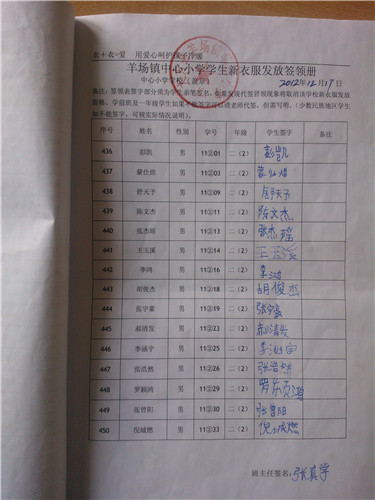 衣+衣=爱 用爱心呵护孩子冷暖
羊场镇中心小学学生新衣服发放签领册
中心小学学校 2012年12月19日
备注：签领表签字部分须为学生亲笔签名，如果发现代签冒领现象将取消该学校新衣服发放
资格。学前班及一年级学生如果不能签字可以请老师代签，但需写明。（少数民族地区学生
如不能签字，可按实际情况说明）。
序号 姓名 性别 学号 年级 学生签字 备注
436 彭凯 男 11②01 二（2） 彭凯
437 蒙仕煜 男 11②03 二（2）
438 舒天予 男 11②09 二（2）
439 陈文杰 男 11②11 二（2） 陈文杰
440 张杰瑶 男 11②13 二（2） 张杰瑶
441 王玉溪 男 11②14 二（2） 王玉溪
442 李鸿 男 11②16 二（2） 李鸿
443 胡俊杰 男 11②18 二（2） 胡俊杰
444 张宇豪 男 11②19 二（2） 张宇豪
445 郝清发 男 11②23 二（2） 郝清发
446 李涵宇 男 11②25 二（2）
447 张浩然 男 11②26 二（2） 张浩然
448 罗颖鸿 男 11②29 二（2）
449 张曾阳 男 11②30 二（2） 张曾阳
450 倪城燃 男 11②33 二（2） 倪城燃
班主任签名：张真学